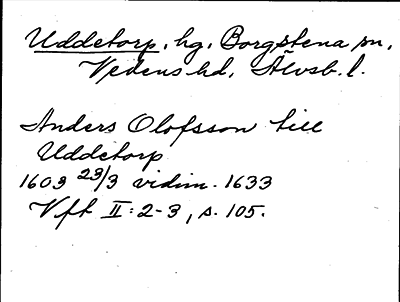 Uddetorp, hg, Borgstena sn,
Vedens hd, Älvsb. l.
Anders Olofsson till
Uddetorp
1603 23/3 vidim. 1633
Vft II: 2-3, s. 105.